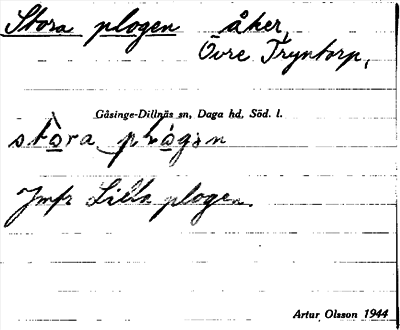 Stora plogen åker,
Övre Tryntorp,
Gåsinge-Dillnäs sn, Daga hd, Söd. l.
stòra plógən
Jmfr Lilla plogen.
Artur Olsson 1944